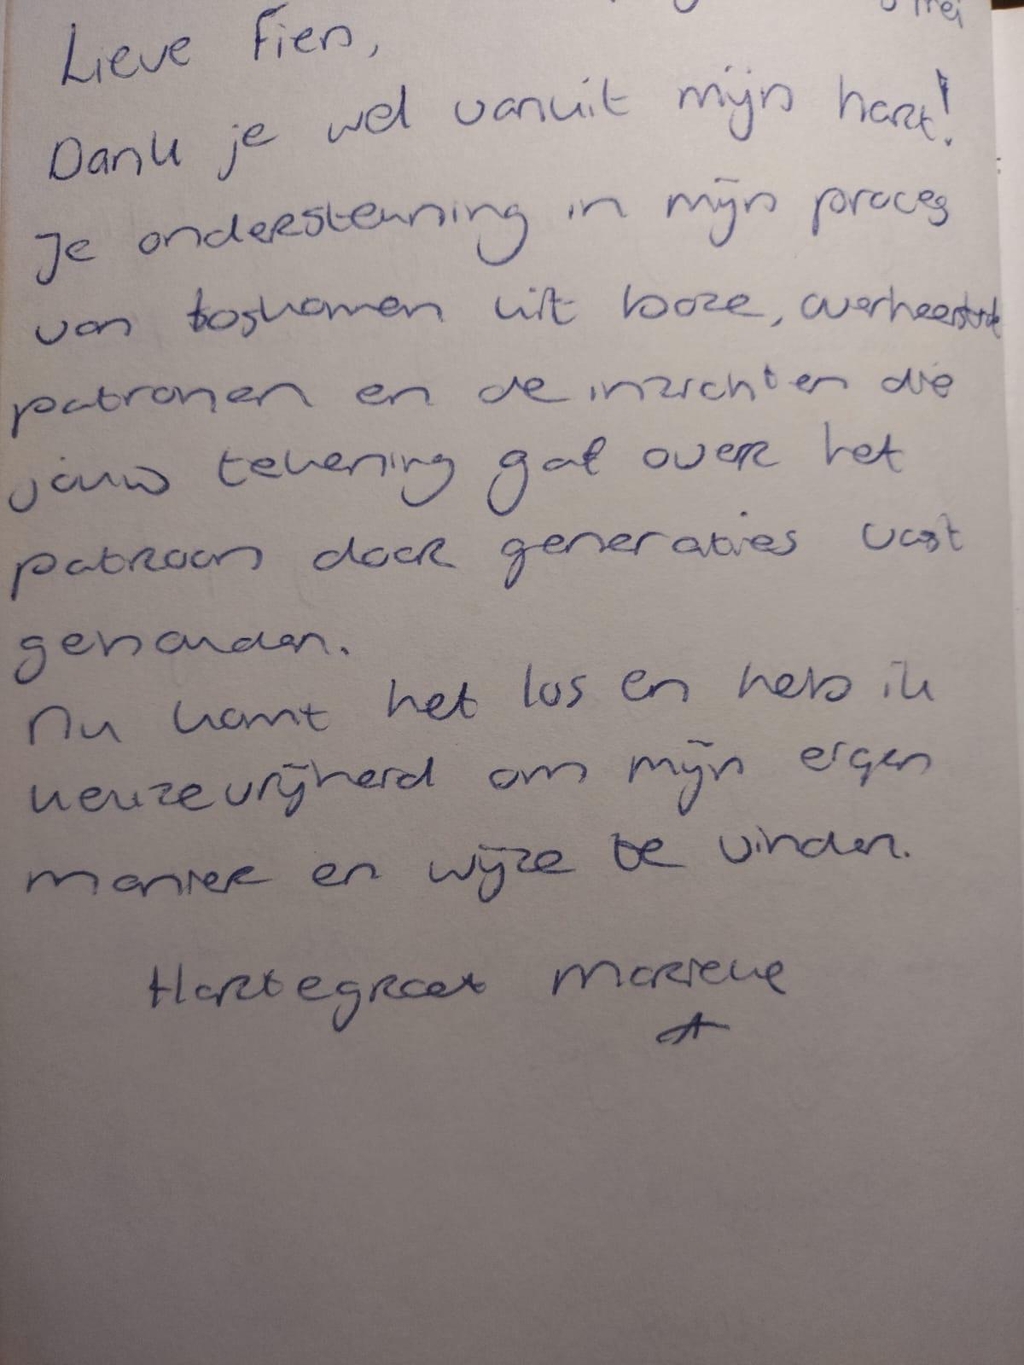 mei
Lieve Fien,
Dank je wel vanuit mijn hart!
Je ondersteuning in mijn proces
van loskomen uit boze, overheersende
patronen en de inzichten die
jouw tekening gaf over het
patroon door generaties vast
gehouden.
Nu komt het los en heb ik
keuzevrijheid om mijn eigen
manier en wijze te vinden.
Hartegroet Marieke